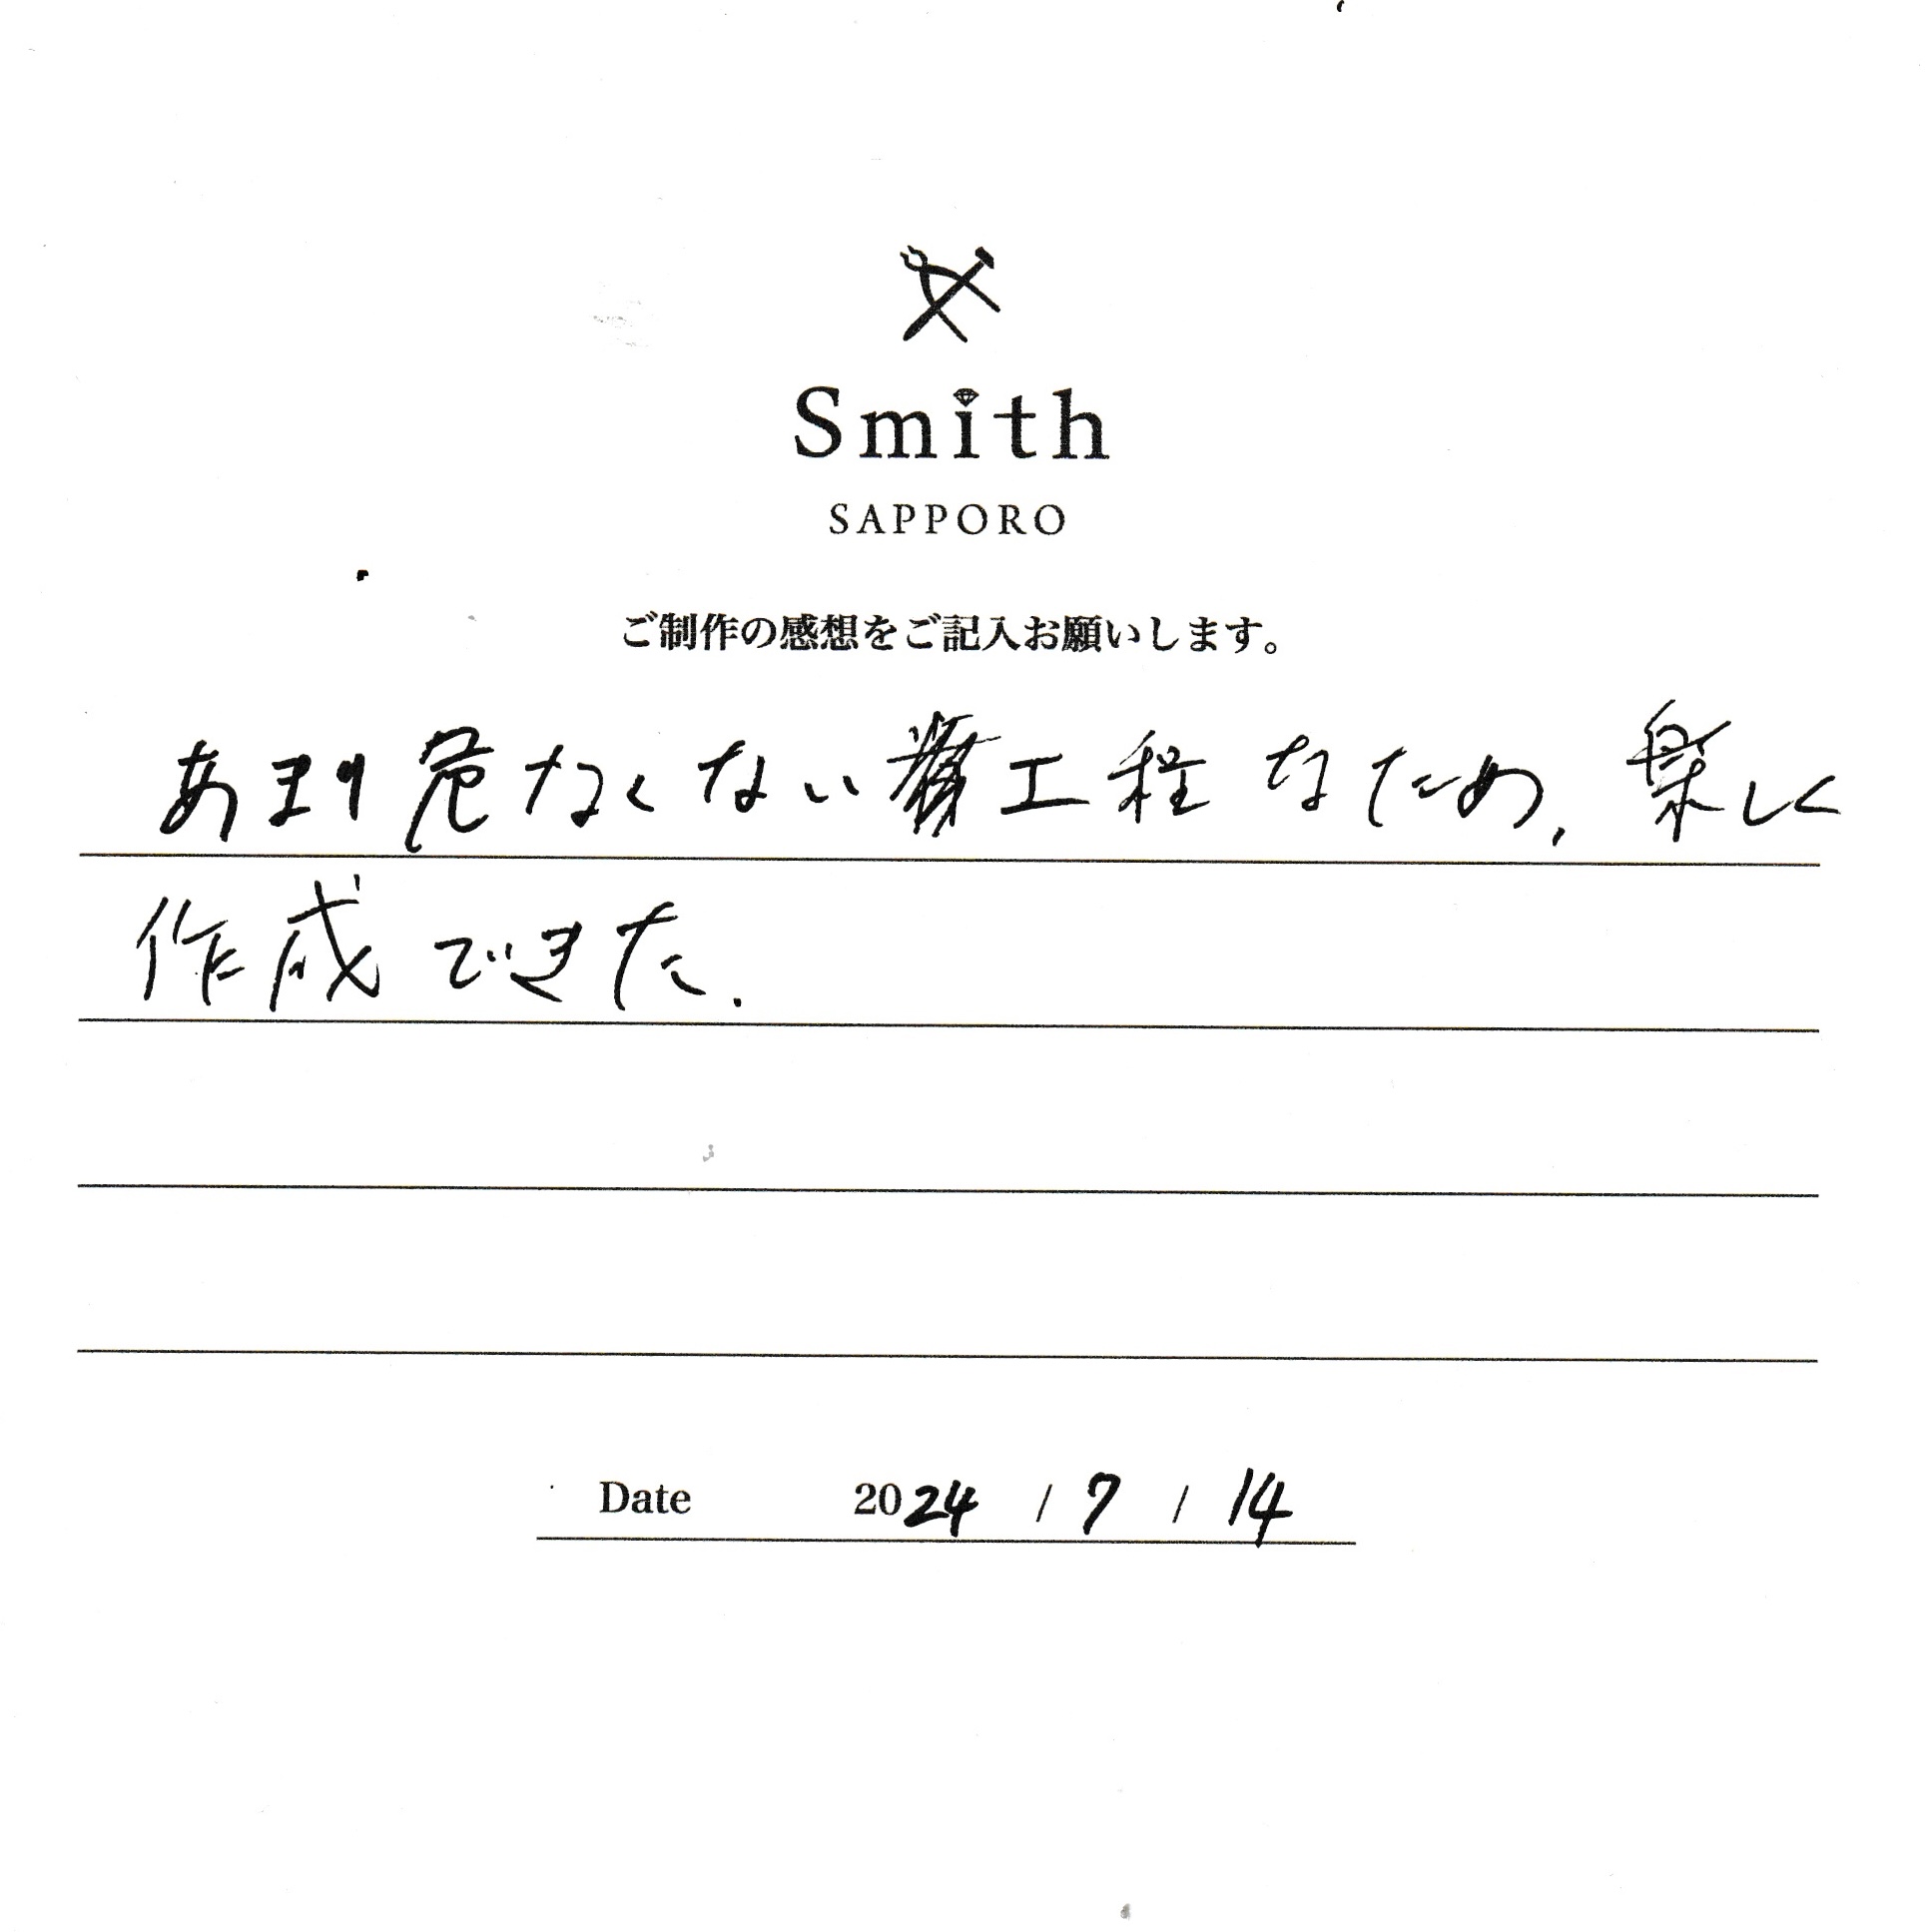 Smith
SAPPORO
ご制作の感想をご記入お願いします。
あまり危なくない工程なため、楽しく
作成できた.
Date 2024 / 7 / 14